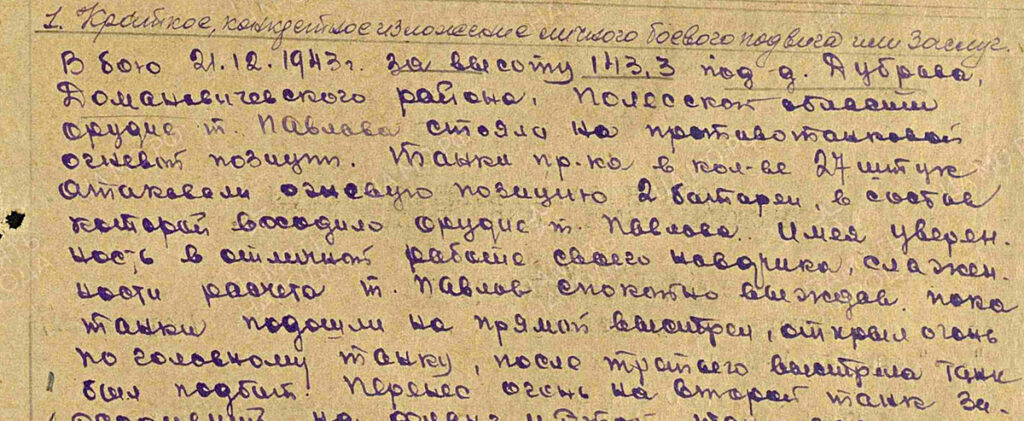 1. Краткое, конкретное изложение личного боевого подвига или заслуг.
В бою 21.12.1943г. за высоту 143,3 под д. Дуброва,
Домановичевского района, Полесской области
орудие т. Павлова стояло на противотанковой
огневой позиции. Танки пр-ка в кол-ве 27 штук
атаковали огневую позицию 2 батареи, в состав
которой входило орудие т. Павлова. Имея уверен-
ность в отличной работе своего наводчика, слажен-
ности расчета т. Павлов спокойно выждав пока
танки подошли на прямой выстрел, открыл огонь
по головному танку, после третьего выстрела танк
был подбит. Перенес огонь на второй танк за-
на